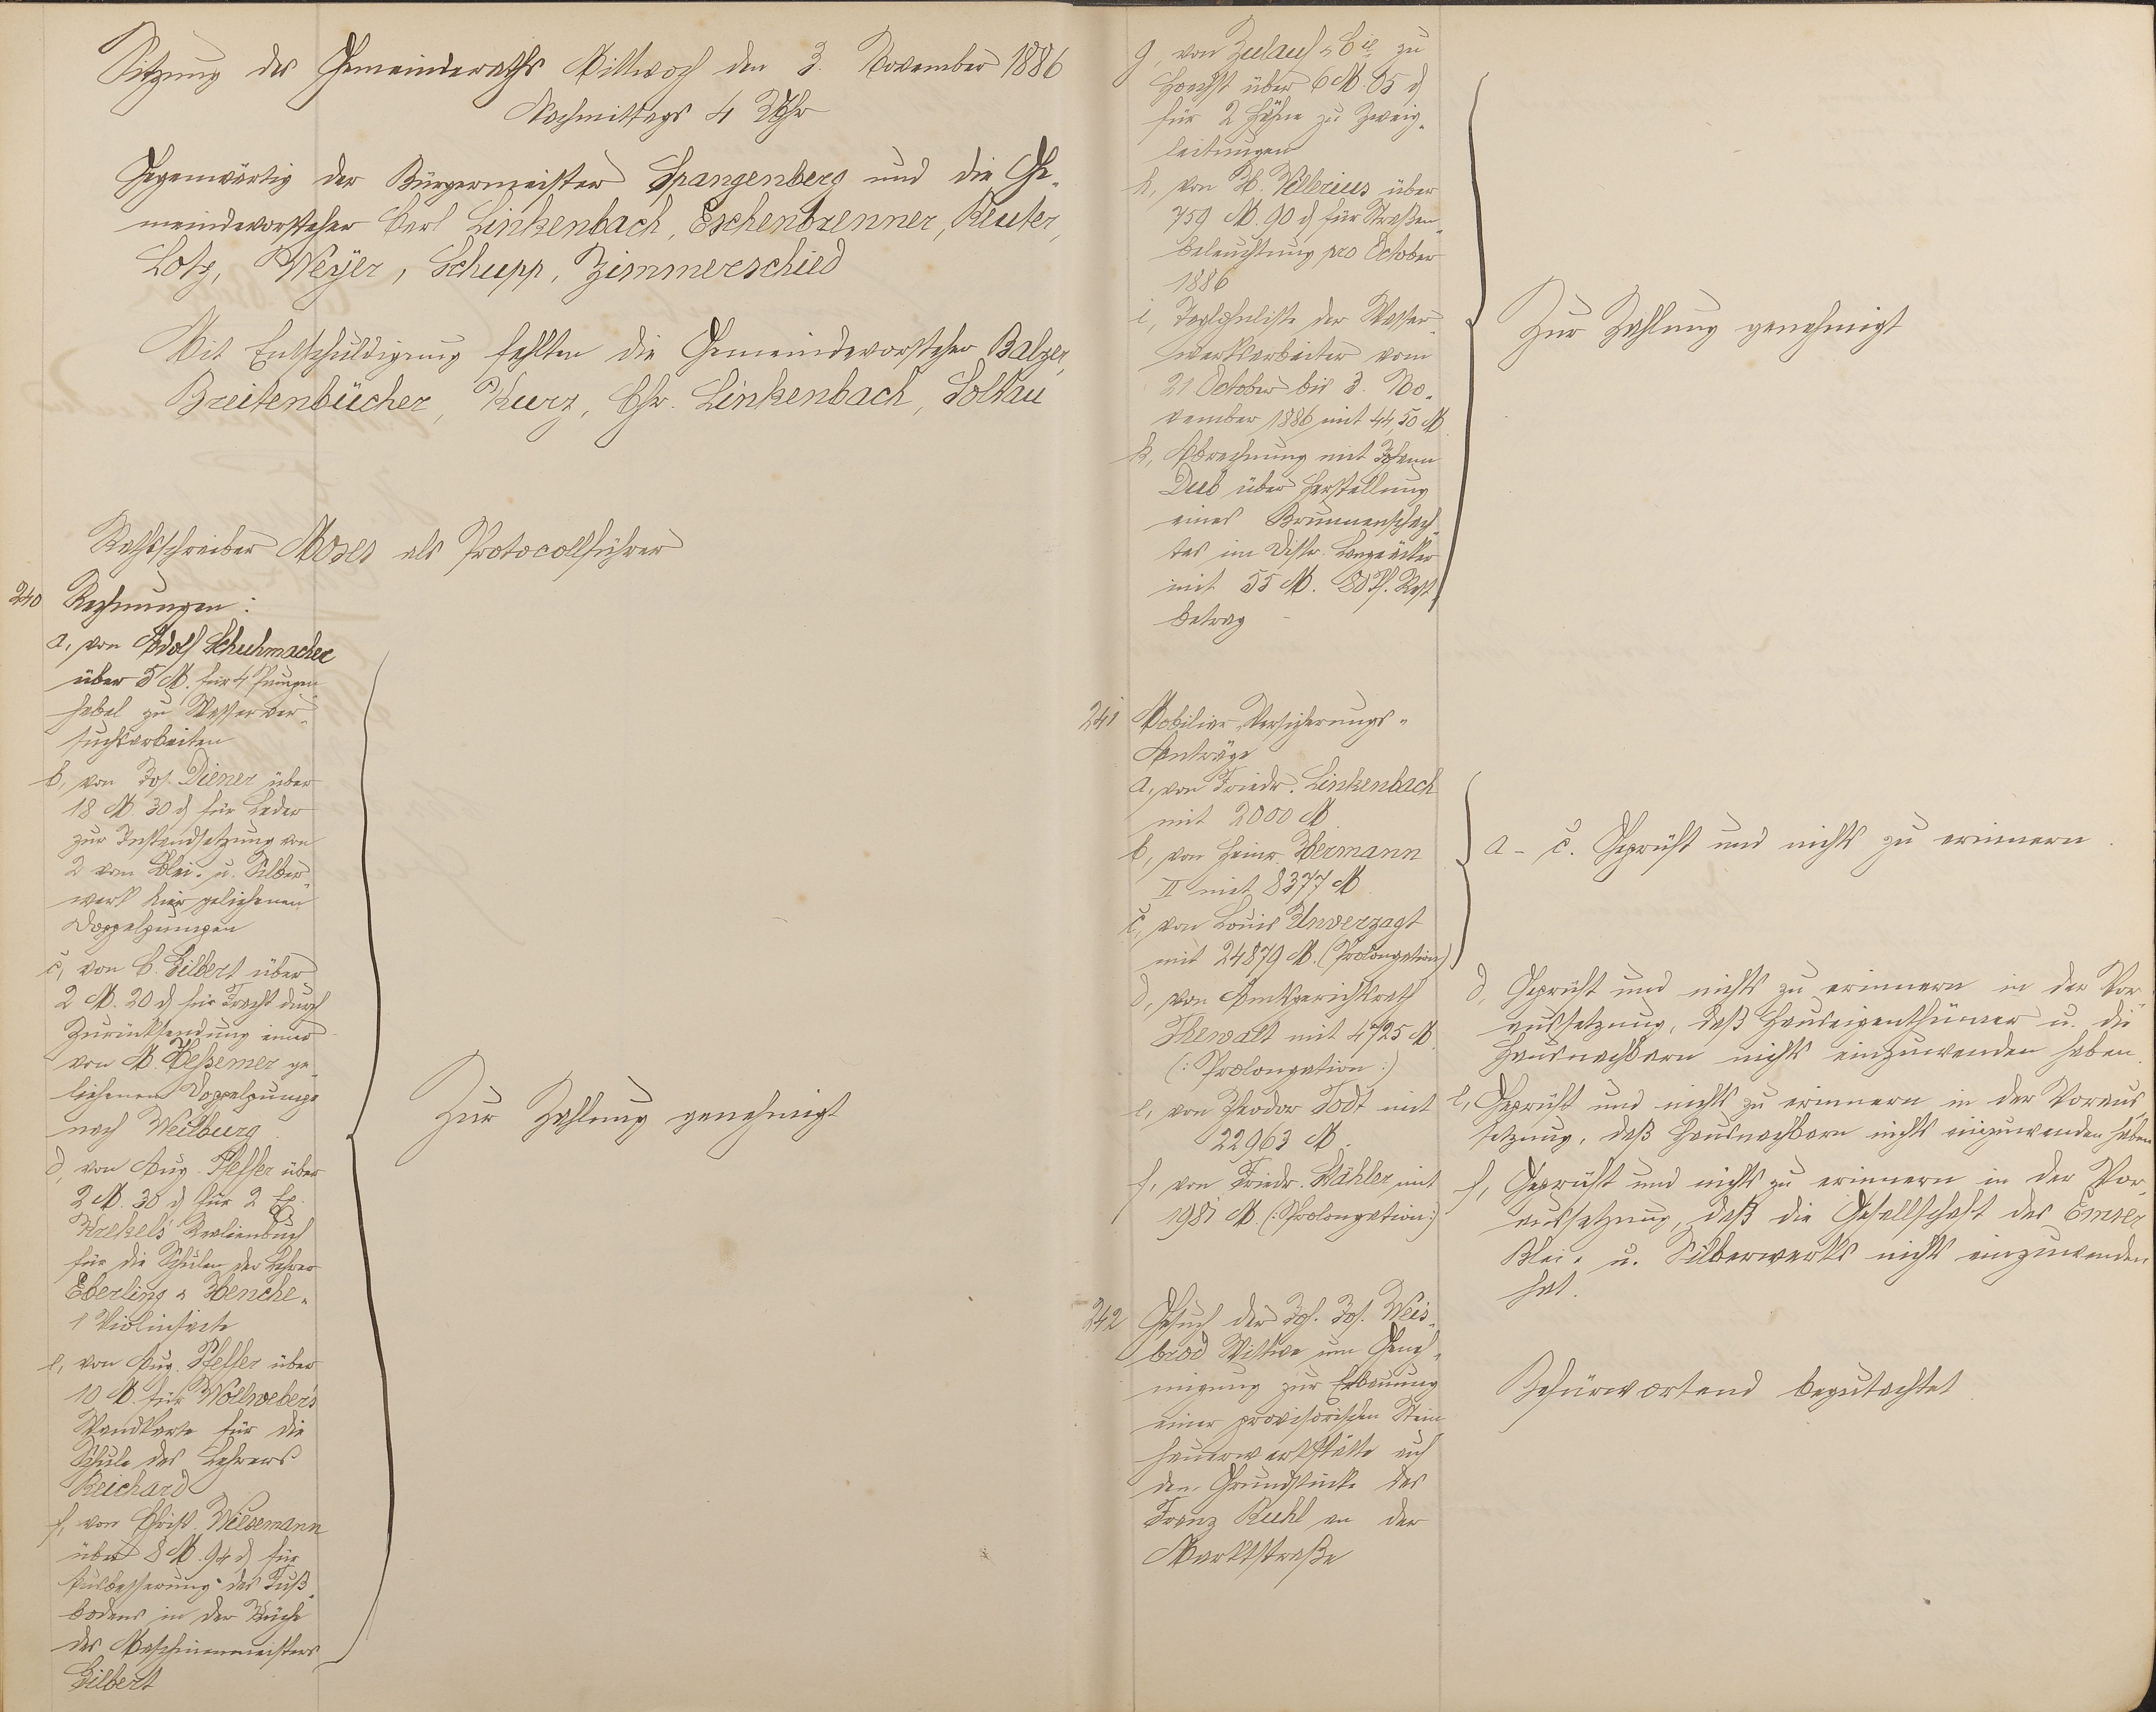 Sitzung des Gemeinderaths Mittwoch den 3. November 1886
Nachmittags 4 Uhr
Gegenwärtig der Bürgermeister Spangenberg und die Ge-
meindevorsteher Carl Linkenbach, Eschenbrenner, Reuter,
Lotz, Weyer, Schupp, Zimmerschied
Mit Entschuldigung fehlten die Gemeindevorsteher Balzer,
Breitenbücher, Kurz, Chr. Linkenbach, Soltau
Rathsschreiber Moses als Protocollführer
240 Rechnungen:
a, von Adolf Schuhmacher
über 5 M. für 4 Pumpen-
hebel zu Wasserver-
suchsarbeiten
b, von Jos. Diener über
18 M. 30 d für Leder
zur Instandsetzung von
2 vom Blei- u. Silber-
werk hier geliehenen
Doppelpumpen
c, von C. Gilbert über
2 M. 20 d für Fracht durch
Zurücksendung einer
von M. Hessemer ge-
liehenen Doppelpumpe
nach Weilburg
d, von Aug. Pfeffer über
2 M. 30 d für 2 Ex.
Krekels Realienbuch
für die Schulen der Lehrer
Eberling & Henche.
1 Violinsaite
e, von Aug. Pfeffer über
10 M. für Wollweber's
Wandkarte für die
Schule des Lehrers
Reichard
f, von Christ. Wiesemann
über 8 M. 94 d für
Ausbesserung des Fuß-
bodens in der Küche
des Maschinenmeisters
Gilbert
Zur Zahlung genehmigt
g, von Zulauf & Cie zu
Höchst über 6 M. 05 d
für 2 Hähne zu Zweig-
leitungen
h, von H. Vellerius über
759 M. 90 d für Straßen-
beleuchtung pro October
1886
i, Taglohnliste der Wasser-
werksarbeiter vom
21 October bis 3. No-
vember 1886 mit 44,50 M
k, Abrechnung mit Johann
Dub über Herstellung
eines Brunnenschach-
tes im Distr. Langeäcker
mit 55 M. 80 Pf. Rest-
betrag
Zur Zahlung genehmigt
241 Mobiliar-Versicherungs-
Anträge
a, von Friedr. Linkenbach
mit 2000 M
b, von Heinr. Hermann
II mit 8377 M
c, von Louis Unverzagt
mit 24879 M. (Prolongation)
a - c. Geprüft und nichts zu erinnern.
d, von Amtsgerichtsrath
Thewalt mit 4725 M.
(: Prolongation :)
d, Geprüft und nichts zu erinnern in der Vor-
aussetzung, daß Hauseigenthümer u. die
Hausnachbarn nichts einzuwenden haben.
e, von Theodor Todt mit
22963 M.
e, Geprüft und nichts zu erinnern in der Voraus-
setzung, daß Hausnachbarn nichts einzuwenden haben
f, von Friedr. Kähler mit
1981 M. (: Prolongation :)
f, Geprüft und nichts zu erinnern in der Vor-
aussetzung, daß die Gesellschaft des Emser
Blei- u. Silberwerks nichts einzuwenden
hat.
242 Gesuch der Joh. Jos. Weis-
brod Wittwe um Geneh-
migung zur Erbauung
einer provisorischen Stein-
hauerwerkstätte auf
dem Grundstücke des
Franz Ruhl an der
Marktstraße
Befürwortend begutachtet